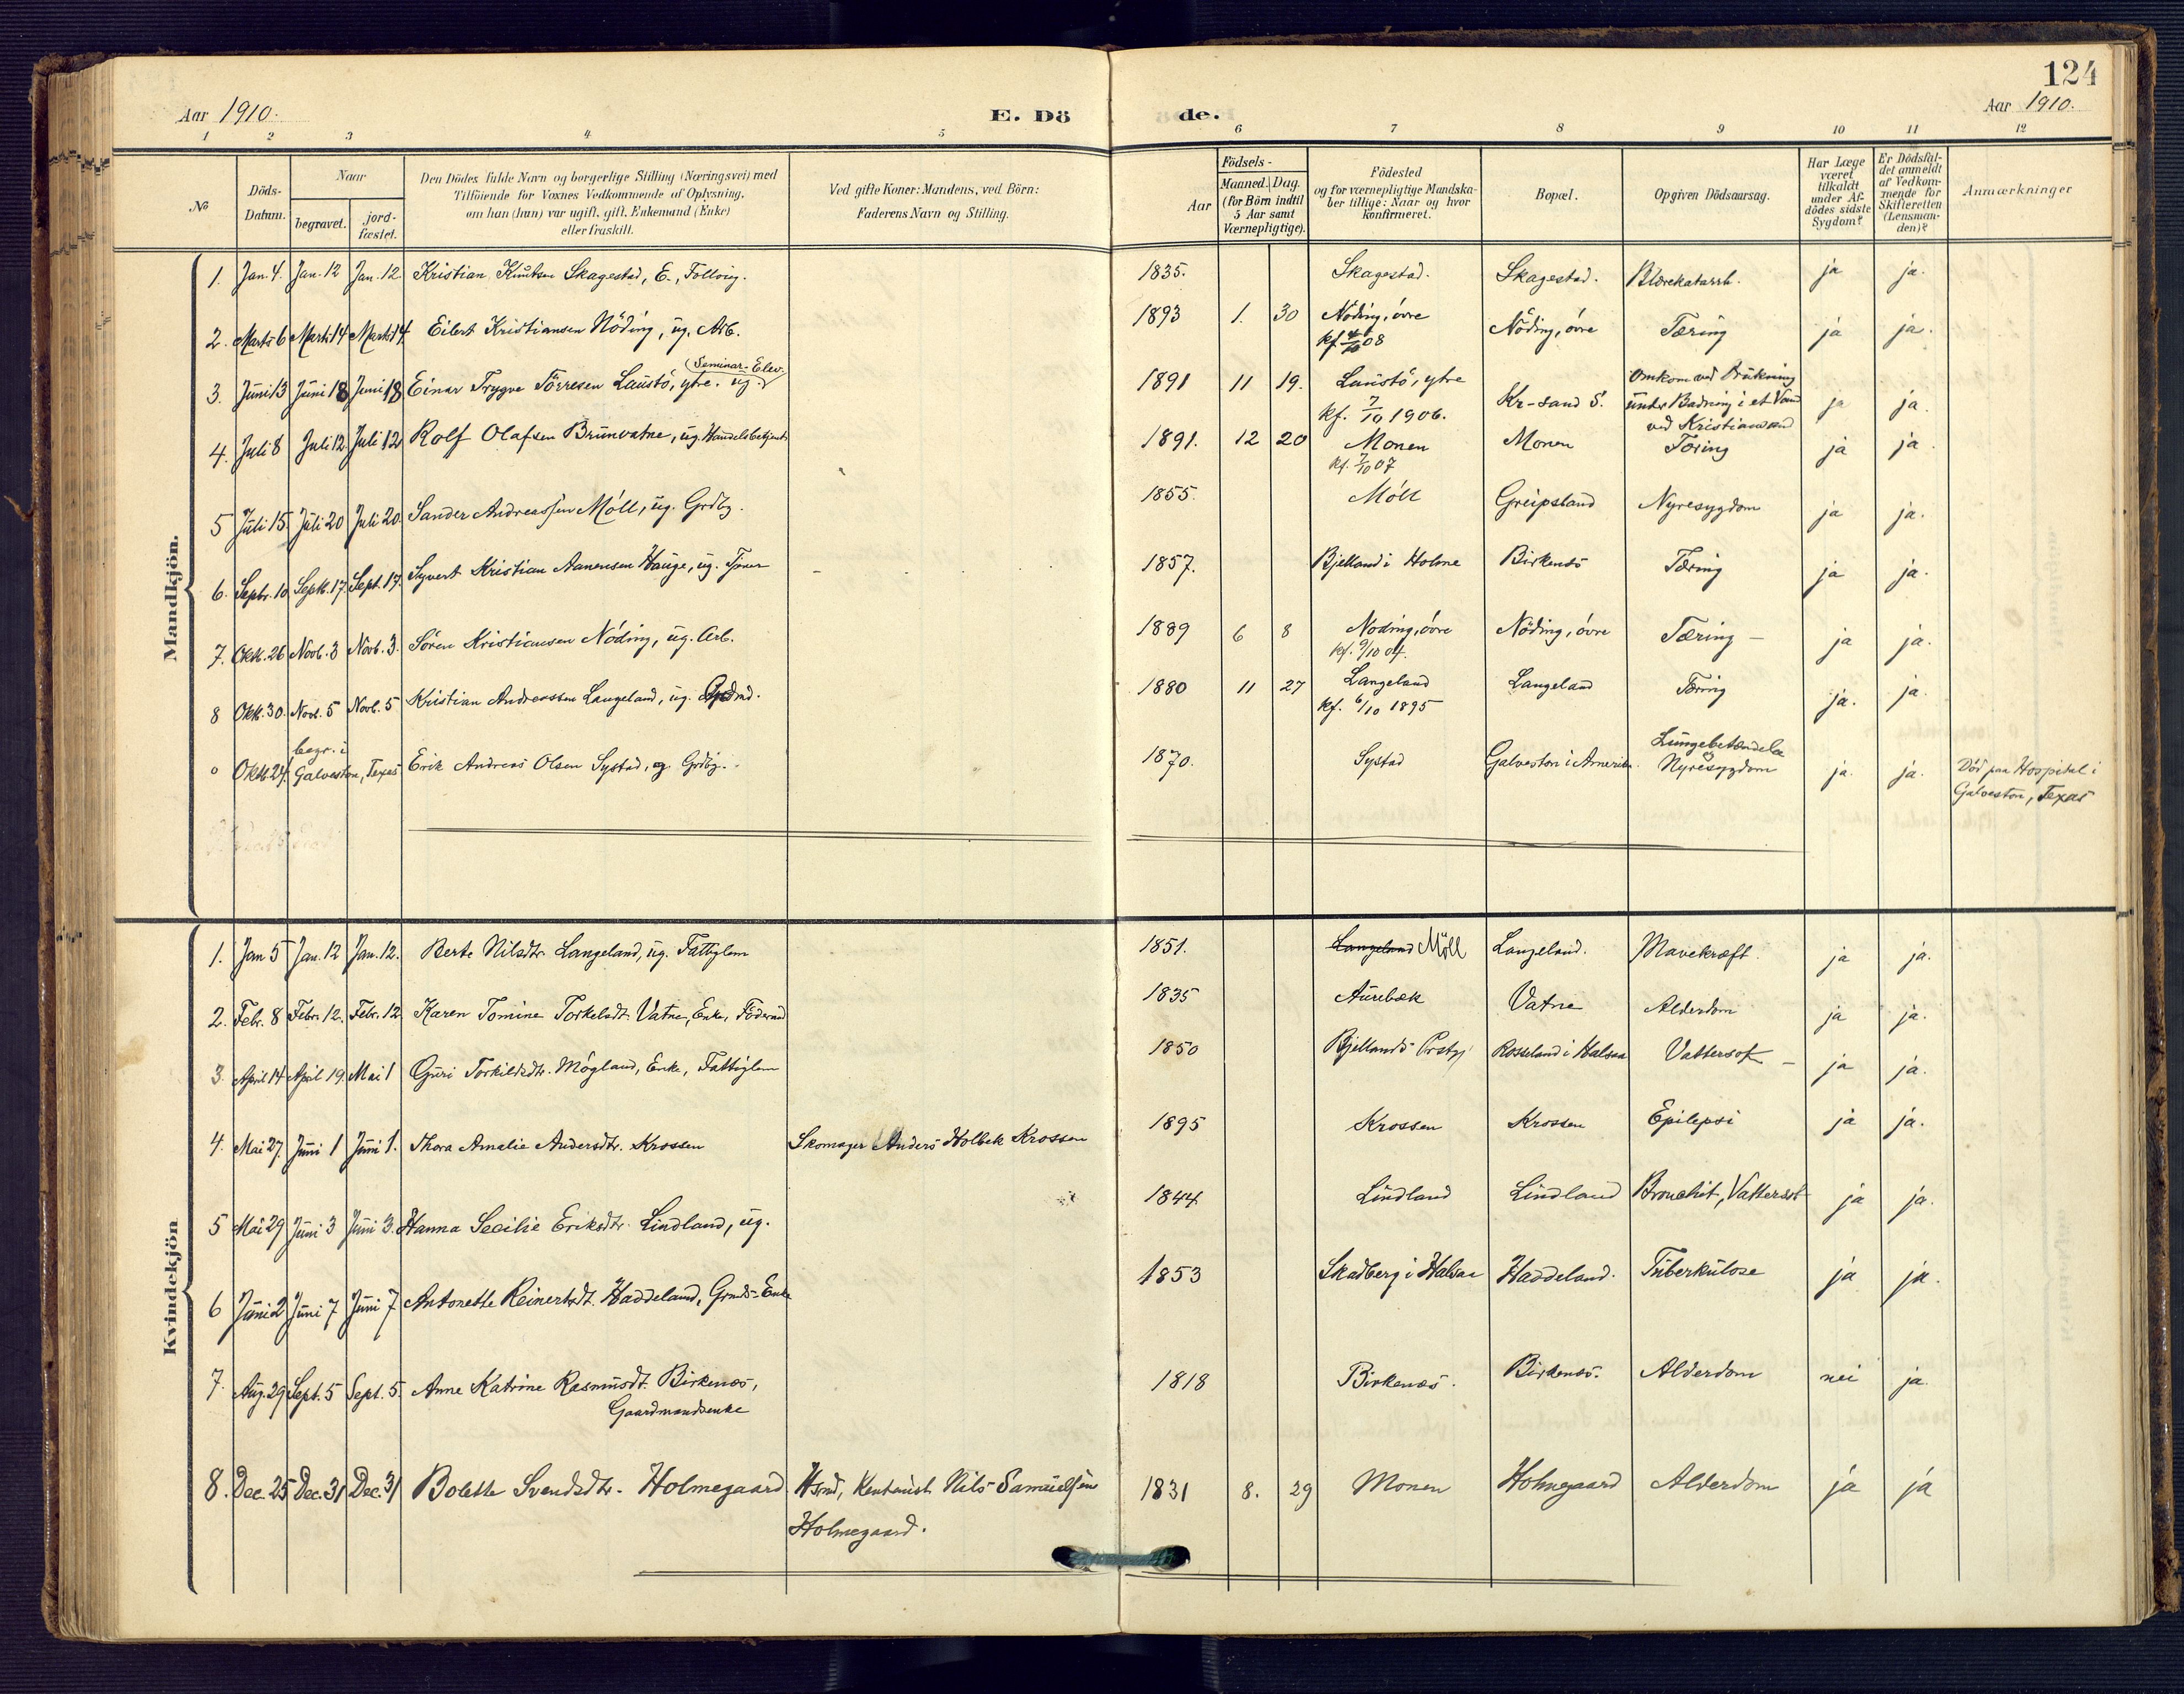 124
Aar 1910.
E. Dö
de.
Aar 1910.
1 2 3 4 5 6 7 8 9 10 11 12
No
Döds-Datum.
Naar
begravet.
jord-fæstet.
Den Dödes fulde Navn og borgerlige Stilling (Næringsvei) med
Tilföiende for Voxnes Vedkommende af Oplysning,
om han (hun) var ugift, gift, Enkemand (Enke)
eller fraskilt.
Ved gifte Koner: Mandens, ved Börn:
Faderens Navn og Stilling.
Födsels-
Aar
Maaned. Dag.
(for Börn indtil
5 Aar samt
Værnepligtige).
Födested
og for værnepligtige Mandska-
ber tillige: Naar og hvor
konfirmeret.
Bopæl.
Opgiven Dödsaarsag.
Har Læge
været
tilkaldt
under Af-
dödes sidste
Sygdom?
Er Dödsfal-
det anmeldt
af Vedkom-
mende for
Skifteretten
(Lensman-
den)?
Anmærkninger
Mandkjön.
1. Jan. 4. Jan. 12 Jan. 12 Kristian Knutsen Skagestad, E., 1835. Skagestad. Skagestad. Blærekatarrh. ja ja.
2. Marts 6 Marts 14 Marts 14 Eilert Kristiansen Nöding, ug. Arb. 1893 1. 30 Nöding, övre Nöding, övre Tæring ja ja.
kf. 08
(Seminar-Elev.)
3. Juni 13 Juni 18 Juni 18 Einar Trygve Törresen Laustö, ytre. ug. 1891 11 19. Laustö, ytre Kr-sand S. Omkom ved Drukning ja ja.
kf. 7/10 1906. under Badning i et Vand
ved Kristiansand
4. Juli 8 Juli 12 Juli 12 Rolf Olafsen Brunvatne, ug. Handelsbetjent 1891. 12 20 Monen Monen Tæring ja ja.
kf. 7/10 07
5 Juli 15 Juli 20 Juli 20 Sander Andreassen Möll, ug. Grdbg. 1855. Möll Greipsland Nyresygdom ja ja.
6. Septbr. 10 Septb. 17. Sept. 17. Syvert Kristian Aanensen Hauge, ug. 1857. Bjelland i Holme Birkenæs Tæring ja ja.
7. Oktb. 26 Novb. 3 Novb. 3. Sören Kristiansen Nöding, ug. Arb. 1889 6 8 Nöding, övre Nöding, övre Tæring – ja ja.
kf. 9/10 04.
8 Oktb. 30. Novb. 5 Novb. 5 Kristian Andreassen Langeland, ug. 1880 11 27 Langeland Langeland Tæring ja. ja.
kf. 6/10 1895
0 Oktb. 24. begr. i
Galveston, Texas Erik Andreas Olsen Systad, ug. Grdbg. 1870. Systad Galveston i Amerika. Lungebetændelse
og Nyresygdom ja. ja. Död paa Hospital i
Galveston, Texas
Kvindekjön
1. Jan 5 Jan. 12 Jan. 12. Berte Nilsdtr. Langeland, ug. Fattiglem 1851. Langeland Möll Langeland. Mavekræft. ja ja.
2. Febr. 8 Febr. 12. Febr. 12 Karen Tomine Torkelsdt. Vatne, Enke, Föderaad 1835 Aurebæk Vatne Alderdom ja ja.
3. April 14 April 19. Mai 1 Guri Torkildsdtr. Mögland, Enke, Fattiglem 1850 Bjellands Prstgj Rosseland i Halsaa Vattersot – ja ja.
4. Mai 27. Juni 1 Juni 1. Thora Amalie Andersdtr. Krossen Skomager Anders Holbek Krossen 1895 Krossen Krossen Epilepsi ja ja.
5 Mai 29 Juni 3 Juni 3. Hanna Secilie Eriksdtr. Lindland, ug. 1844 Lindland Lindland Bronchit, Vattersot ja ja.
6 Juni 2 Juni 7 Juni 7 Antonette Reinertsdt. Haddeland, Grmds-Enke 1853 Skadberg i Halsaa Haddeland. Tuberkulose ja ja.
7. Aug. 29 Sept. 5 Sept. 5. Anne Katrine Rasmusdt. Birkenæs, 1818 Birkenæs. Birkenæs. Alderdom nei ja.
Gaardmandsenke
8. Dec. 25 Dec. 31 Dec. 31 Bolette Svendsdtr. Holmegaard Hsmd, Kontunist Nils Samuelsen 1831 8. 29 Monen Holmegaard Alderdom ja ja
Holmegaard.